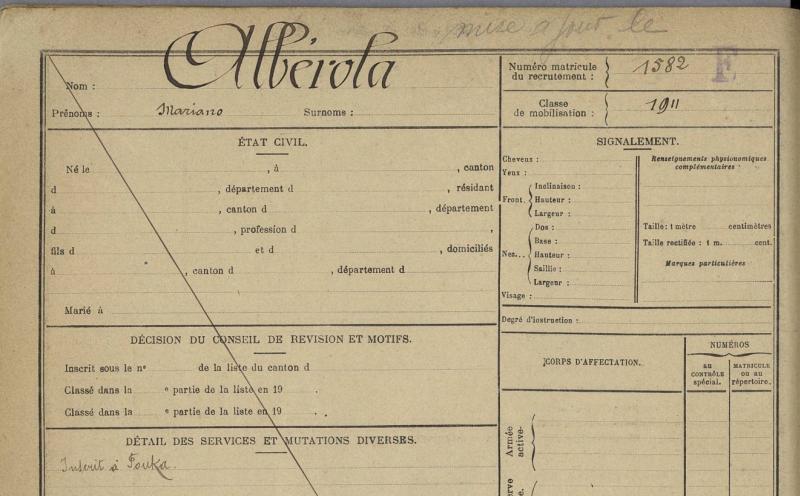 mise à jour le
Nom : Albérola
Prénoms : Mariano Surnoms :
Numéro matricule
du recrutement : 1582
E
Classe
de mobilisation : 1911
ÉTAT CIVIL.
Né le , à , canton
d , département d , résidant
à , canton d , département
d , profession d ,
fils d et d , domiciliés
à , canton d , département d
Marié à
SIGNALEMENT.
Cheveux :
Yeux :
Front. Inclinaison :
Hauteur :
Largeur :
Nez... Dos :
Base :
Hauteur :
Saillie :
Largeur :
Visage :
Renseignements physionomiques
complémentaires
Taille : 1 mètre centimètres
Taille rectifiée : 1 m. cent.
Marques particulières
Degré d'instruction :
DÉCISION DU CONSEIL DE REVISION ET MOTIFS.
Inscrit sous le nº de la liste du canton d
Classé dans la e partie de la liste en 19
Classé dans la e partie de la liste en 19 .
DÉTAIL DES SERVICES ET MUTATIONS DIVERSES.
Inscrit à Fouka.
CORPS D'AFFECTATION.
NUMÉROS
AU
CONTRÔLE
spécial.
MATRICULE
ou au
répertoire.
Armée
active.